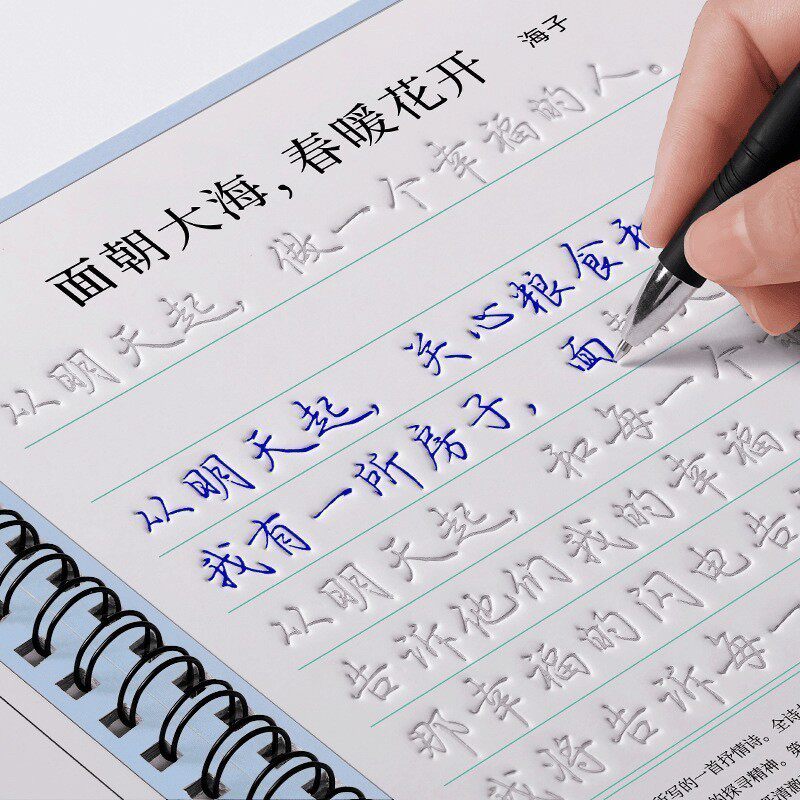 面朝大海，春暖花开
海子
从明天起，做一个幸福的人。
从明天起，关心粮食和
我有一所房子，面
从明天起，和每一个
告诉他们我的幸福。
那幸福的闪电告
我将告诉每一
所写的一首抒情诗。全诗
的探寻精神。第